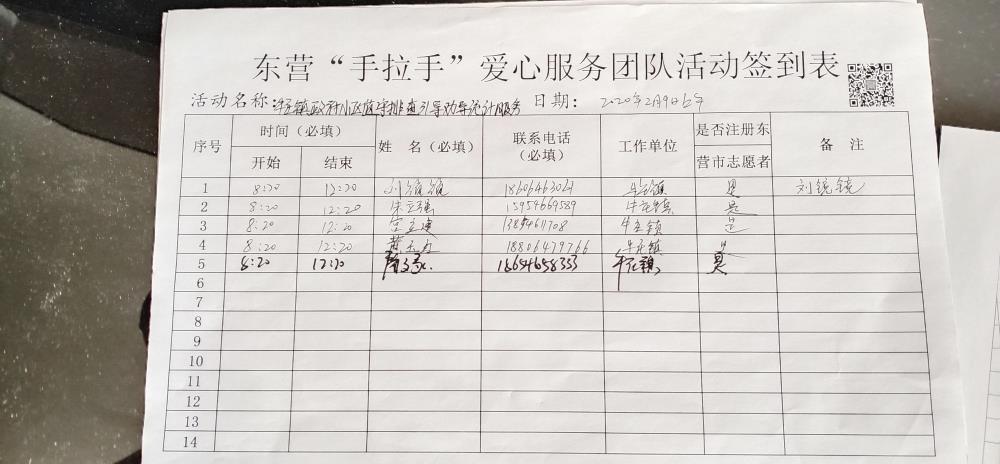 东营“手拉手”爱心服务团队活动签到表
活动名称: 日期: 2020年2月9日上午
序号 时间（必填） 姓 名（必填） 联系电话（必填） 工作单位 是否注册东营市志愿者 备 注
开始 结束
1 8:20 12:20 18606463061 牛庄镇 是
2 8:20 12:20 朱立强 15954669589 牛庄镇 是
3 8:20 12:20 13854611708 牛庄镇 是
4 8:20 12:20 18806479766 牛庄镇 是
5 8:20 12:20 18654658333 牛庄镇 是
6
7
8
9
10
11
12
13
14